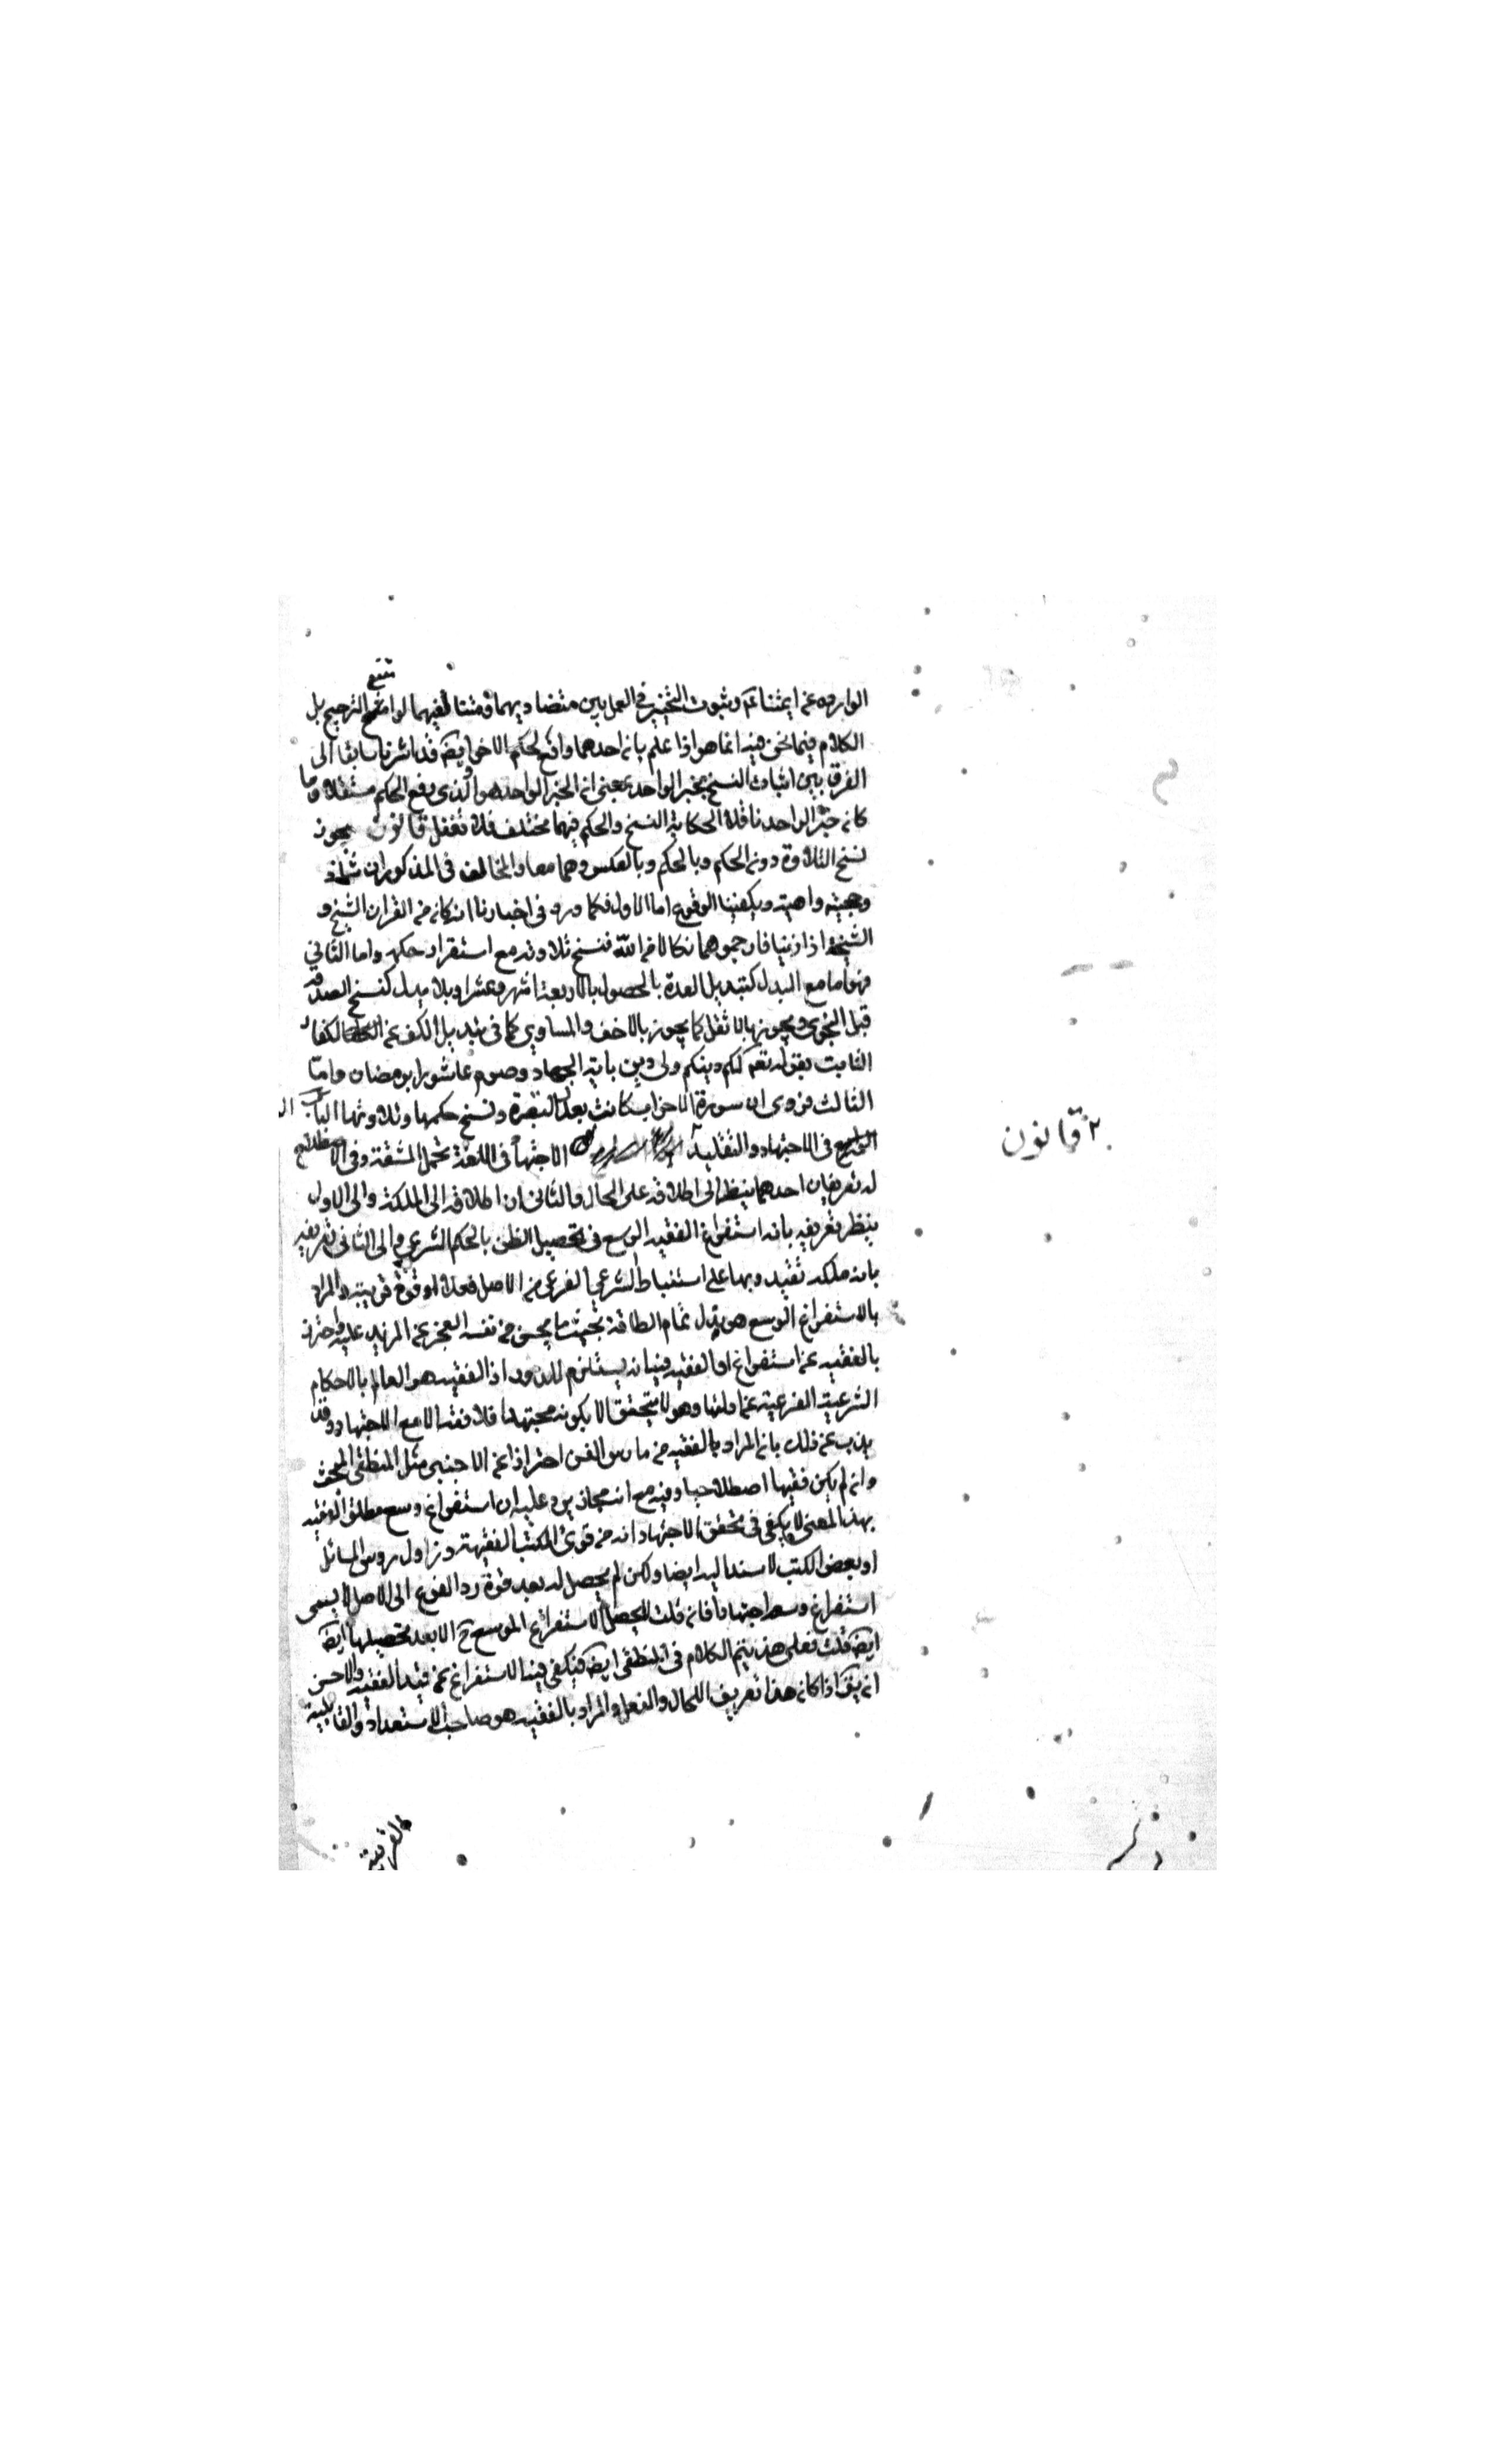 الواردة عن ائمتنا عم وثبوت التخيير في العمل بين متضاديهما ومتنافيهما لو امتنع الترجيح بل
الكلام فيما نحن فيه انما هو اذا علم بان احدهما رافع لحكم الاخر وايضا قد اشرنا سابقا الى
الفرق بين اثبات النسخ بخبر الواحد بمعنى ان الخبر الواحد هو الذي رفع الحكم مستقلا وما
كان خبر الواحد ناقلا لحكاية النسخ والحكم فيهما مختلف فلا تغفل قانون يجوز
نسخ التلاوة دون الحكم وبالحكم وبالعكس وهما معا والمخالف في المذكورات شاذ
وحجيته واهية ويكفينا الوقوع اما الاول فكما ورد في اخبارنا انه كان من القران الشيخ و
الشيخة اذا زنيا فارجموهما نكالا من الله فنسخ تلاوته مع استقرار حكمه واما الثاني
فهو اما مع البدل كتبديل العدة بالحصول بالاربعة اشهر وعشرا وبلا بدل كنسخ الصدقة
قبل النجوى ويجوز بالاثقل كما يجوز بالاخف والمساوي كما في تبديل الكف عن الكفار
الثابت بقوله تعم لكم دينكم ولي دين باية الجهاد وصوم عاشورا برمضان واما
الثالث فروي ان سورة الاحزاب كانت تعدل البقرة ونسخ حكمها وتلاوتها الباب
الرابع في الاجتهاد والتقليد الاجتهاد في اللغة تحمل المشقة وفي الاصطلاح
له تعريفان احدهما ينظر الى اطلاقه على الحال والثاني الى اطلاقه الى الملكة والى الاول
ينظر تعريفه بانه استفراغ الفقيه الوسع في تحصيل الظن بالحكم الشرعي والى الثاني تعريفه
بانه ملكة يقتدر بها على استنباط الشرعي الفرعي من الاصل فعلا او قوة قريبة والمراد
بالاستفراغ الوسع هو بذل تمام الطاقة بحيث يحس من نفسه العجز عن المزيد عليه واحترز
بالفقيه عن استفراغ الفقيه فيه انه يستلزم الدور اذ الفقيه هو العالم بالاحكام
الشرعية الفرعية عن ادلتها وهو لا يتحقق الا بكونه مجتهدا فلا فقه الا مع الاجتهاد وقد
يذب عن ذلك بان المراد بالفقيه من مارس الفن احترازا عن الاجنبي مثل المنطقي البحت
وان لم يكن فقيها اصطلاحيا وفيه مع انه مجاز يرد عليه ان استفراغ وسع مطلق الفقيه
بهذا المعنى لا يكفي في تحقق الاجتهاد انه من قرئ الكتب الفقهية وزاول رؤس المسائل
او بعض الكتب الاستدلالية ايضا ولكن لم يحصل له بعد قوة رد الفرع الى الاصل لا يسمى
استفراغ وسعه اجتهادا فان قلت لا يحصل الاستفراغ الوسع ح الا بعد تحصيلها ايضا
ايضا قلت فعلى هذا يتم الكلام في المنطقي ايضا فيكفي فيه الاستفراغ عن قيد الفقيه والاحسن
ان يق اذا كان هذا تعريف الحال والفعل والمراد بالفقيه هو صاحب الاستعداد والقابلية
القريبة
٢ قانون